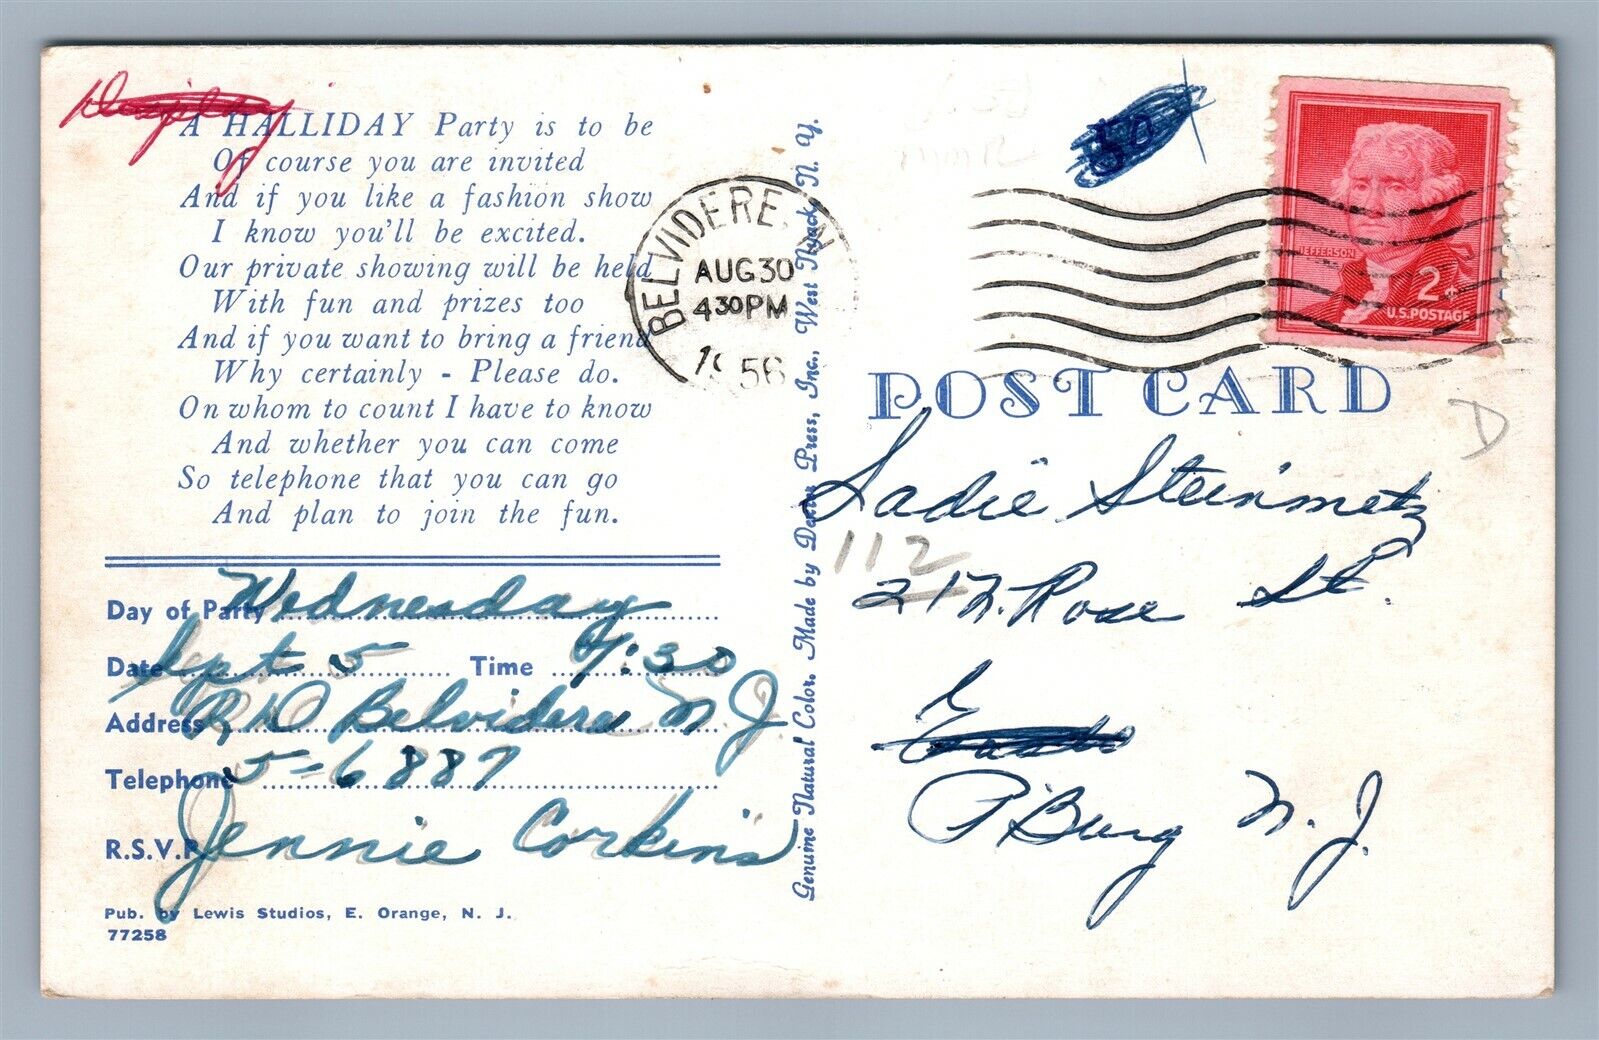 A HALLIDAY Party is to be
Of course you are invited
And if you like a fashion show
I know you'll be excited.
Our private showing will be held
With fun and prizes too
And if you want to bring a friend
Why certainly - Please do.
On whom to count I have to know
And whether you can come
So telephone that you can go
And plan to join the fun.
Day of Party Wednesday
Date Sept 5 Time 7:30
Address R D Belvidere N J
Telephone 5-6887
R.S.V.P. Jennie Corkins
Pub. by Lewis Studios, E. Orange, N. J.
77258
Genuine Natural Color. Made by Dexter Press, Inc., West Nyack, N. Y.
BELVIDERE, N
AUG 30
430 PM
1956
50
JEFFERSON
2¢
U.S. POSTAGE
POST CARD
D
Sadie Steinmetz
112
212 Rose St.
P'Burg N. J.